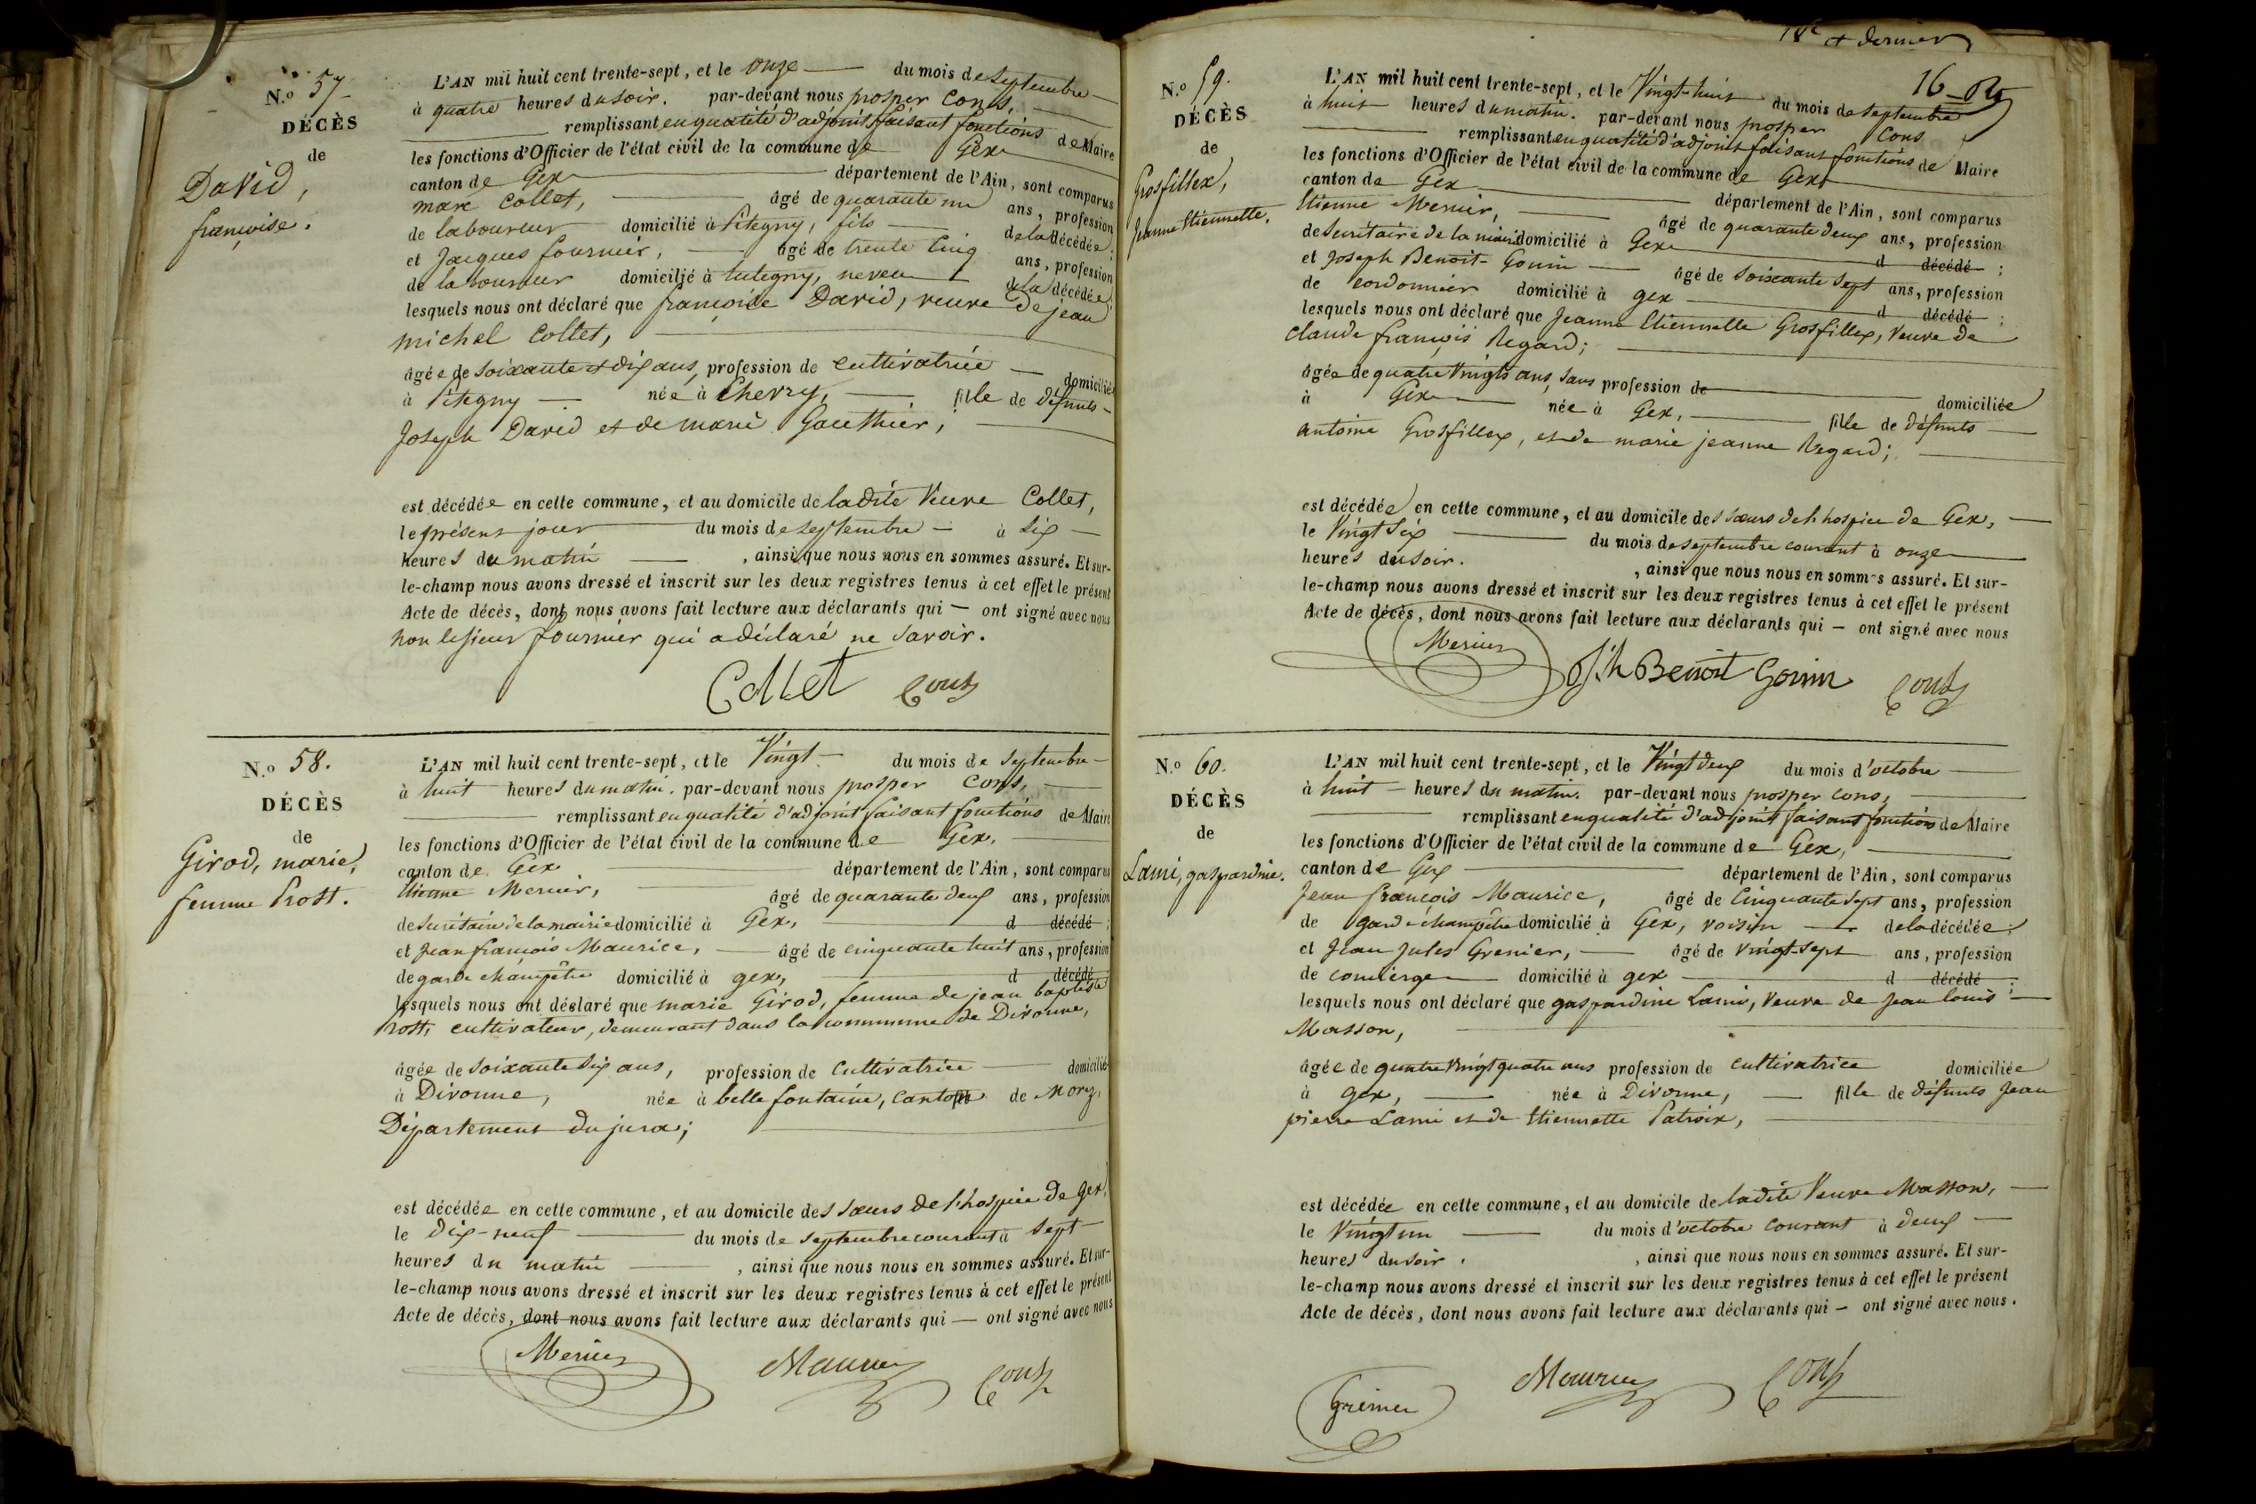 N.º 57
DÉCÈS
de
David,
françoise.
L'AN mil huit cent trente-sept, et le onze du mois de septembre
à quatre heures du soir. par-devant nous prosper Cons,
remplissant en qualité d'adjoint faisant fonctions de Maire
les fonctions d'Officier de l'état civil de la commune de Gex
canton de Gex département de l'Ain, sont comparus
marc Collet, âgé de quarante un ans, profession
de laboureur domicilié à Pitegny, fils de la décédée;
et Jacques fournier, âgé de trente cinq ans, profession
de laboureur domicilié à tutegny, neveu de la décédée;
lesquels nous ont déclaré que françoise David, veuve de jean
michel Collet,
âgée de soixante et dix ans, profession de cultivatrice domiciliée
à Pitegny née à Chevry, fille de défunts
Joseph David et de marie Gauthier,
est décédée en cette commune, et au domicile de ladite Veuve Collet,
le présent jour du mois de septembre à six
heures du matin, ainsi que nous nous en sommes assuré. Et sur-
le-champ nous avons dressé et inscrit sur les deux registres tenus à cet effet le présent
Acte de décès, dont nous avons fait lecture aux déclarants qui — ont signé avec nous
non le sieur fournier qui a déclaré ne savoir.
Collet Cons
N.º 58.
DÉCÈS
de
Girod, marie,
femme Prost.
L'AN mil huit cent trente-sept, et le Vingt du mois de septembre
à huit heures du matin. par-devant nous prosper Cons,
remplissant en qualité d'adjoint faisant fonctions de Maire
les fonctions d'Officier de l'état civil de la commune de Gex,
canton de Gex département de l'Ain, sont comparus
Etienne Mercier, âgé de quarante deux ans, profession
de secrétaire de la mairie domicilié à Gex, d décédé;
et Jean françois Maurice, âgé de cinquante huit ans, profession
de garde champêtre domicilié à gex, d décédé
lesquels nous ont déclaré que marie Girod, femme de jean baptiste
Prost, cultivateur, demeurant dans la commune de Divonne,
âgée de soixante six ans, profession de cultivatrice domiciliée
à Divonne, née à belle fontaine, canton de Morez,
Département du jura;
est décédée en cette commune, et au domicile des sœurs de l'hospice de gex,
le dix-neuf du mois de septembre courant à sept
heures du matin, ainsi que nous nous en sommes assuré. Et sur-
le-champ nous avons dressé et inscrit sur les deux registres tenus à cet effet le présent
Acte de décès, dont nous avons fait lecture aux déclarants qui — ont signé avec nous
Mercier Maurice Cons
et dernier
16
N.º 59.
DÉCÈS
de
Grosfillex,
Jeanne Etiennette.
L'AN mil huit cent trente-sept, et le Vingt-huit du mois de septembre
à huit heures du matin. par-devant nous prosper Cons
remplissant en qualité d'adjoint faisant fonctions de Maire
les fonctions d'Officier de l'état civil de la commune de Gex
canton de Gex département de l'Ain, sont comparus
Etienne Mercier, âgé de quarante deux ans, profession
de secrétaire de la mairie domicilié à Gex d décédé;
et Joseph Benoit Gonin âgé de soixante sept ans, profession
de cordonnier domicilié à gex d décédé;
lesquels nous ont déclaré que Jeanne Etiennette Grosfillex, veuve de
claude françois Regard;
âgée de quatre Vingts ans, sans profession de domiciliée
à Gex née à Gex, fille de défunts
antoine Grosfillex, et de marie jeanne Regard;
est décédée en cette commune, et au domicile des sœurs de l'hospice de Gex,
le Vingt six du mois de septembre courant à onze
heures du soir., ainsi que nous nous en sommes assuré. Et sur-
le-champ nous avons dressé et inscrit sur les deux registres tenus à cet effet le présent
Acte de décès, dont nous avons fait lecture aux déclarants qui — ont signé avec nous
Mercier Jh Benoit Gonin Cons
N.º 60.
DÉCÈS
de
Lami, gaspardine.
L'AN mil huit cent trente-sept, et le Vingt deux du mois d'octobre
à huit heures du matin. par-devant nous prosper cons,
remplissant en qualité d'adjoint faisant fonctions de Maire
les fonctions d'Officier de l'état civil de la commune de Gex,
canton de Gex département de l'Ain, sont comparus
Jean françois Maurice, âgé de Cinquante sept ans, profession
de garde champêtre domicilié à Gex, voisin de la décédée;
et Jean Jules Grenier, âgé de vingt-sept ans, profession
de concierge domicilié à gex d décédé;
lesquels nous ont déclaré que gaspardine Lami, veuve de Jean louis
Masson,
âgée de quatre vingt quatre ans profession de cultivatrice domiciliée
à gex, née à Divonne, fille de défunts Jean
pierre Lami et de Etiennette Patroix,
est décédée en cette commune, et au domicile de ladite Veuve Masson,
le Vingt un du mois d'octobre courant à deux
heures du soir., ainsi que nous nous en sommes assuré. Et sur-
le-champ nous avons dressé et inscrit sur les deux registres tenus à cet effet le présent
Acte de décès, dont nous avons fait lecture aux déclarants qui — ont signé avec nous.
Grenier Maurice Cons